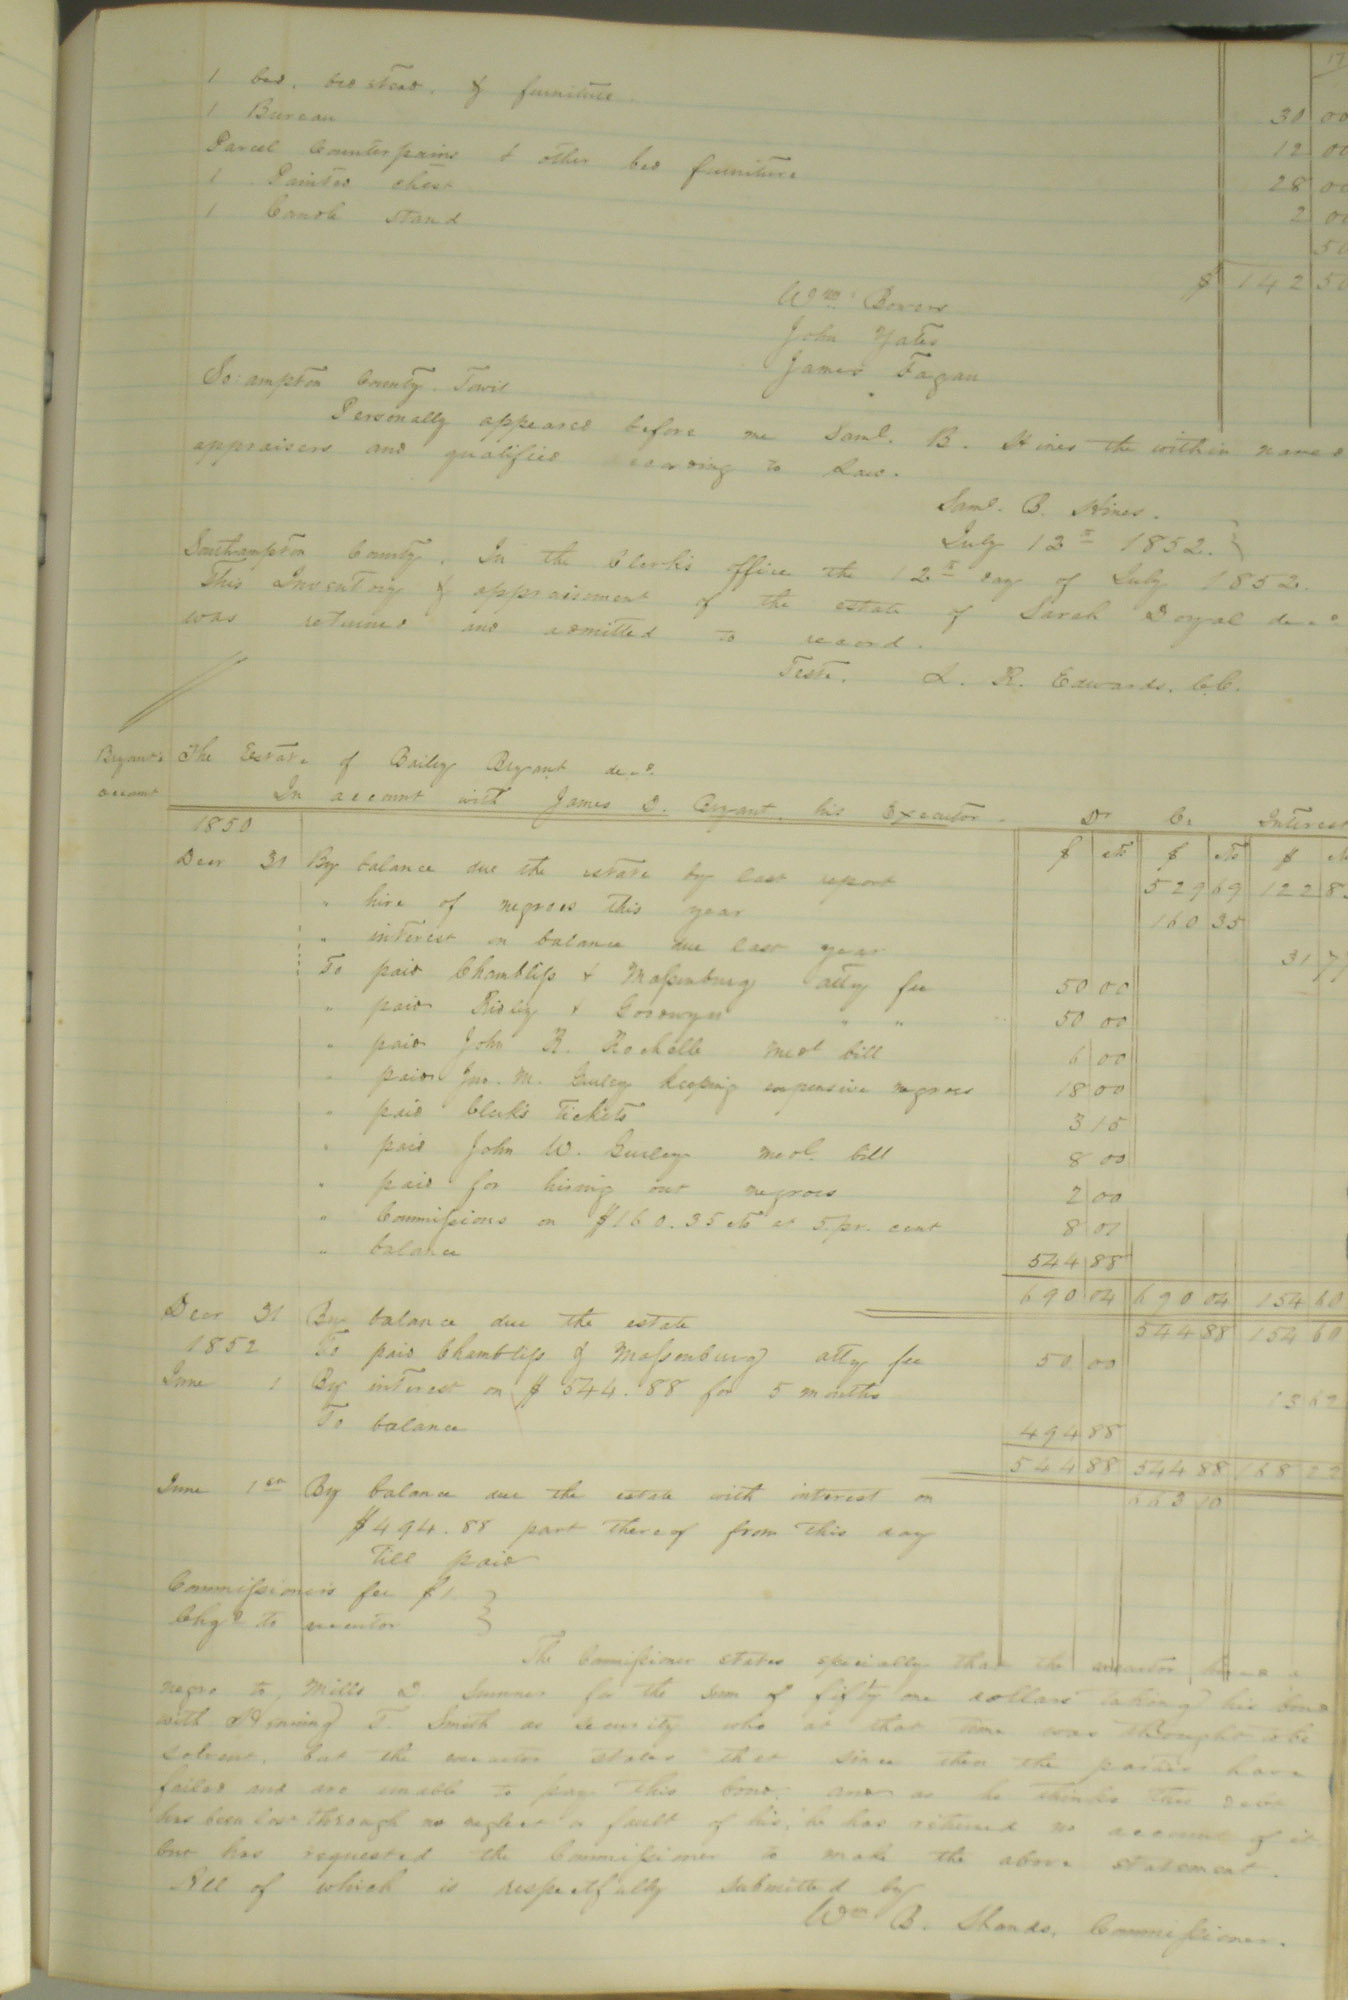 17
1 bed, bedstead, & furniture. 30 00
1 Bureau 12 00
Parcel Counterpains & other bed furniture 28 00
1 Painted chest 2 00
1 Candle stand 50
$ 142 50
Wm. Bowers
John Yates
James Fagan
So:ampton County. Towit
Personally appeared before me Saml. B. Hines the within named
appraisers and qualified according to Law.
Saml. B. Hines.
July 12th 1852.
Southampton County. In the Clerk's office the 12th day of July 1852.
This Inventory & appraisment of the estate of Sarah Doyal decd
was returned and admitted to record.
Teste. L. R. Edwards. C.C.
Bryant's account
The Estate of Bailey Bryant decd.
In account with James D. Bryant, his Executor. Dr Cr Interest
1850 $ cts $ cts $
Decr 31 By balance due the estate by last report 529 69 122 8
" hire of negroes this year 160 35
" interest on balance due last year 31 77
To paid Chambliss & Massenburg atty fee 50 00
" paid Ridley & Goodwyn " " 50 00
" paid John R. Rochelle medl bill 6 00
" paid Jno. M. Gurley keeping expensive negroes 18 00
" paid Clerk's Tickets 3 15
" paid John W. Gurley medl. bill 8 00
" paid for hiring out negroes 2 00
" Commissions on $160.35 cts at 5 pr. cent 8 01
" balance 544 88
690 04 690 04 154 60
Decr 31 By balance due the estate 544 88 154 60
1852 To paid Chambliss & Massenburg atty fee 50 00
June 1 By interest on $544.88 for 5 months 13 62
To balance 494 88
544 88 544 88 168 22
June 1st By balance due the estate with interest on 663 10
$494.88 part thereof from this day
till paid
Commissioners fee $1
Chgd to executor
The Commissioner states specially that the executor hired a
negro to, Mills D. Sumner for the sum of fifty one dollars taking his bond
with T. Smith as security who at that time was thought to be
solvent, but the executor states that since then the parties have
failed and are unable to pay this bond, and as he thinks this debt
has been lost through no neglect or fault of his, he has returned no account of it
but has requested the Commissioner to make the above statement.
All of which is respectfully submitted by
Wm B. Shands, Commissioner.